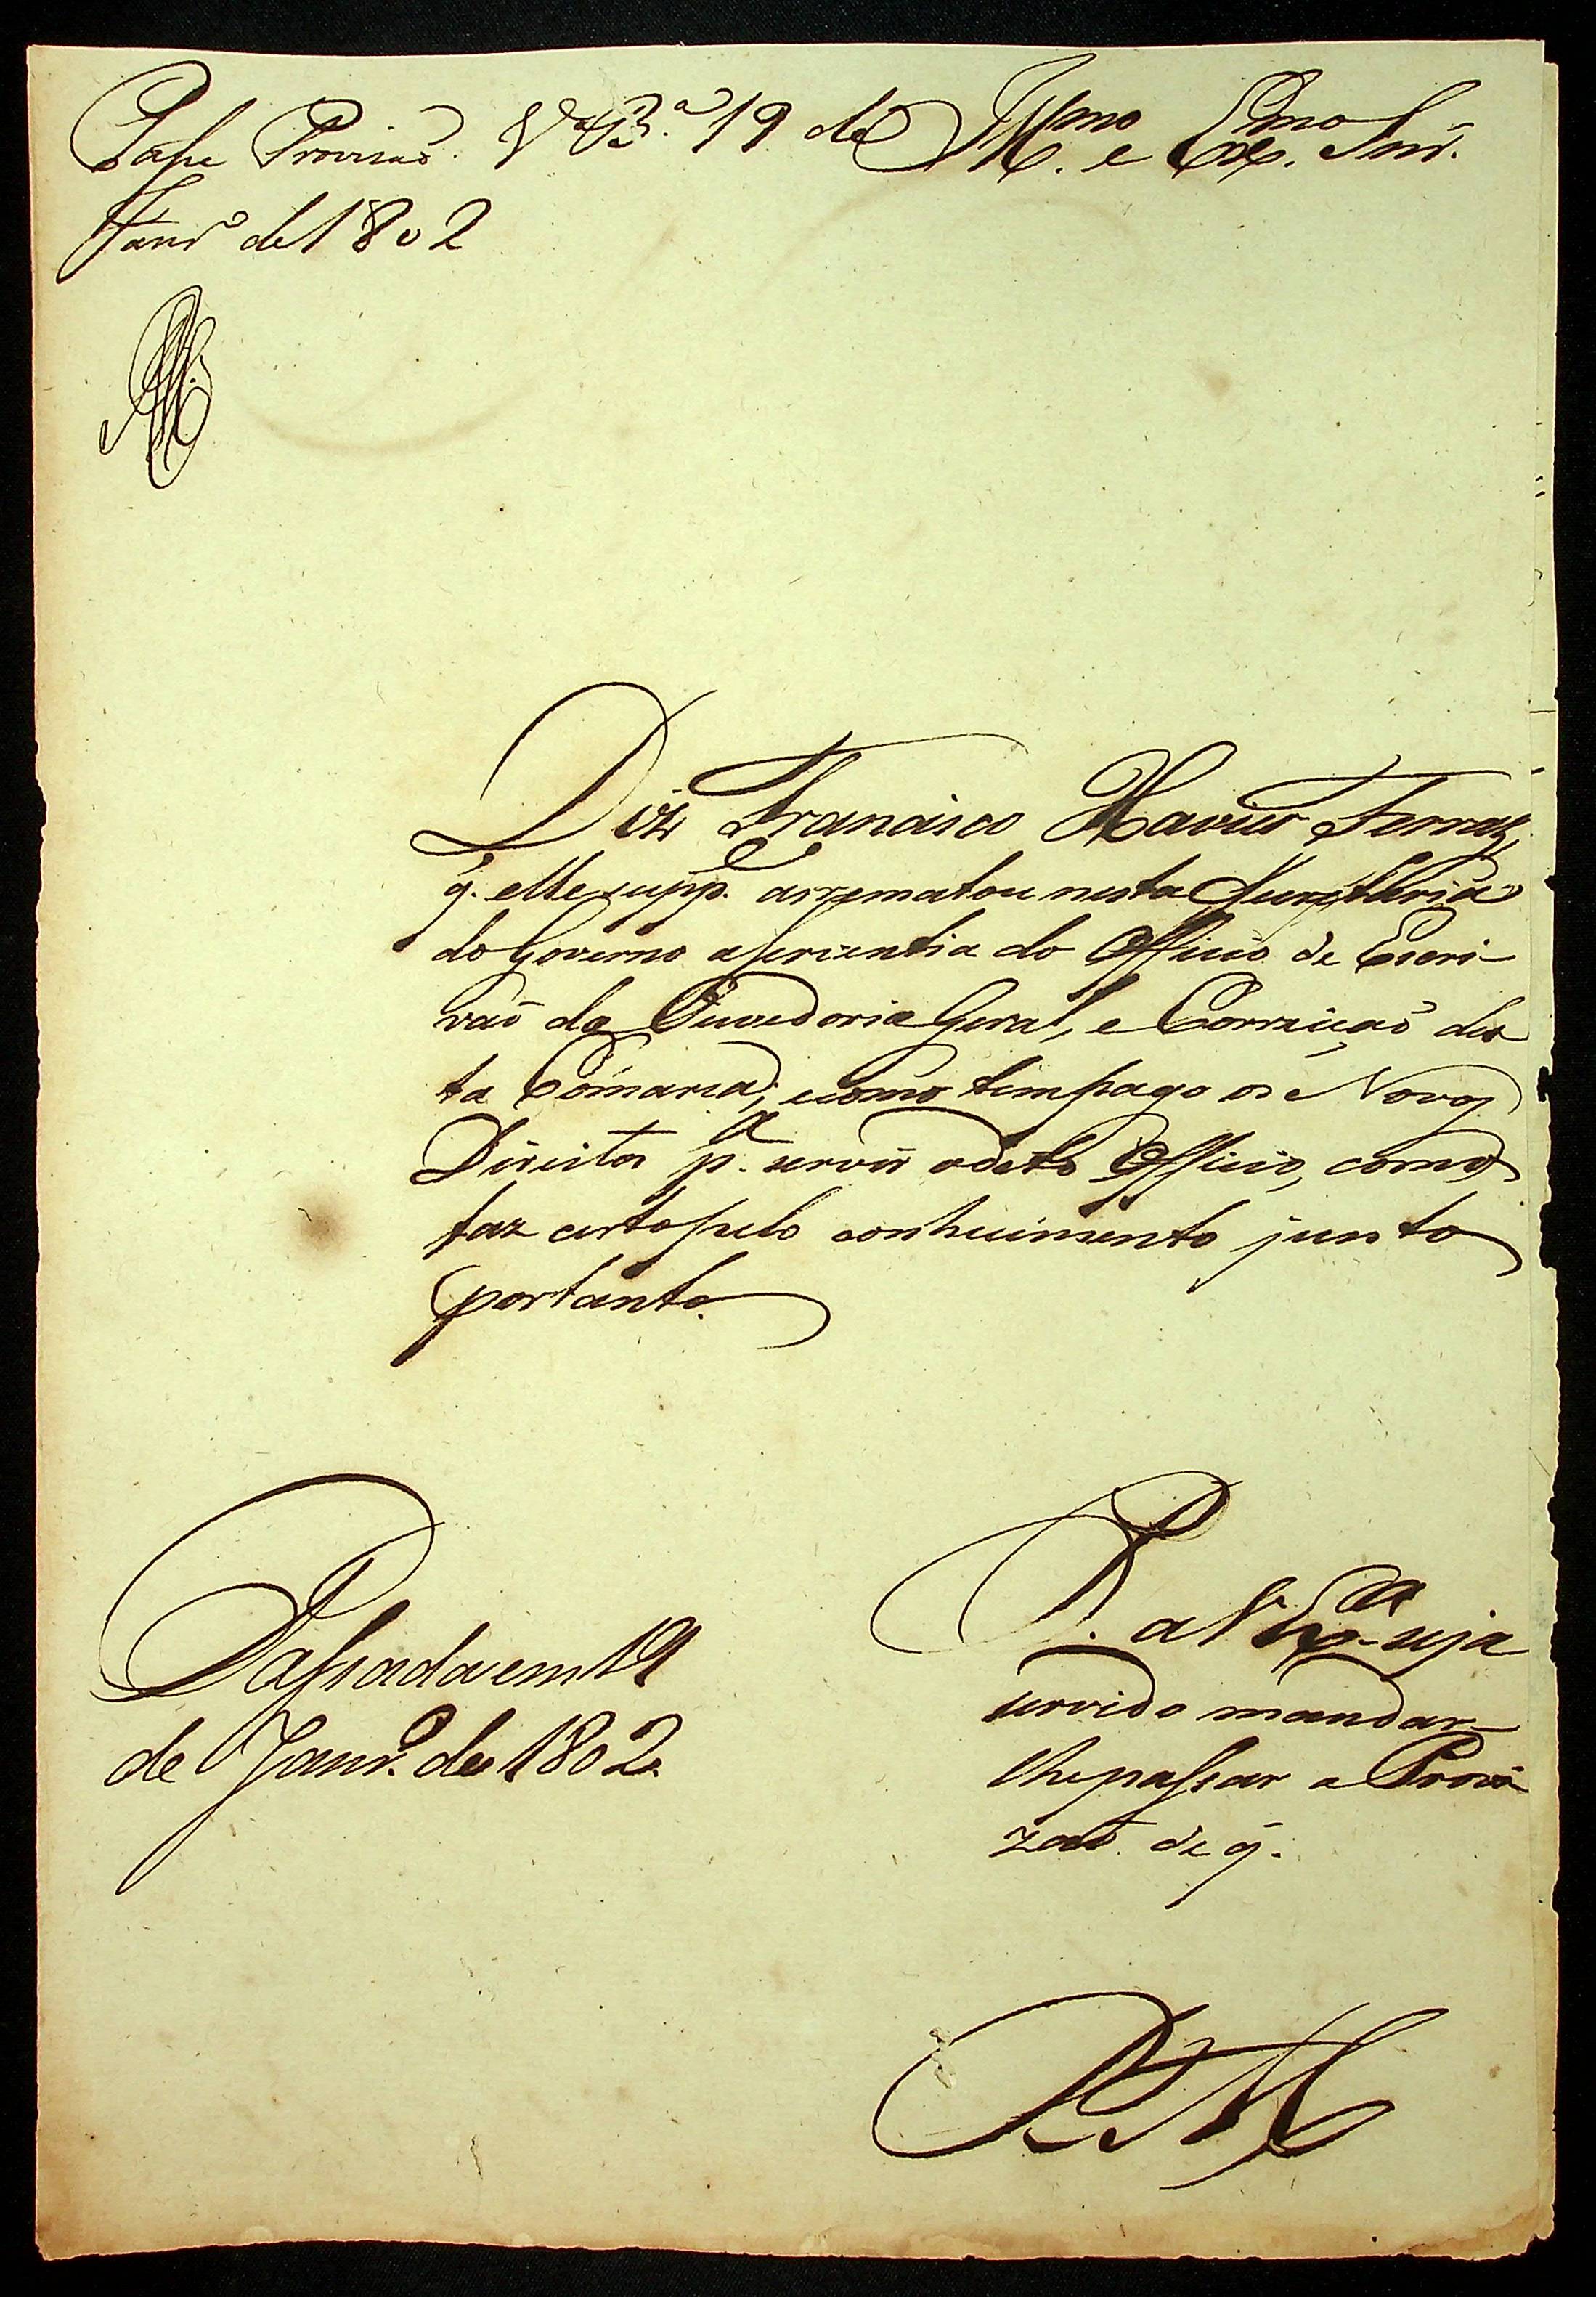 Passe Provisaõ. V.ª B.ª 19 de
Janrº de 1802
Illmo. e Exmo. Snr.
Diz Francisco Xavier Ferraz,
q. elle supp.e arrematou nesta Secretaria
do Governo a serventia do Officio de Escri-
vaõ da Ouvedoria Geral, e Correiçaõ des
ta Comarca; e como tem pago os Novos
Direitos p.a servir o dito Officio, como
faz certo pelo conhecimento junto
portanto.
P. a V Exca. seja
servido mandar-
lhe passar a Provi
zaõ de q.
Passada em 19
de Janro. de 1802.
R M